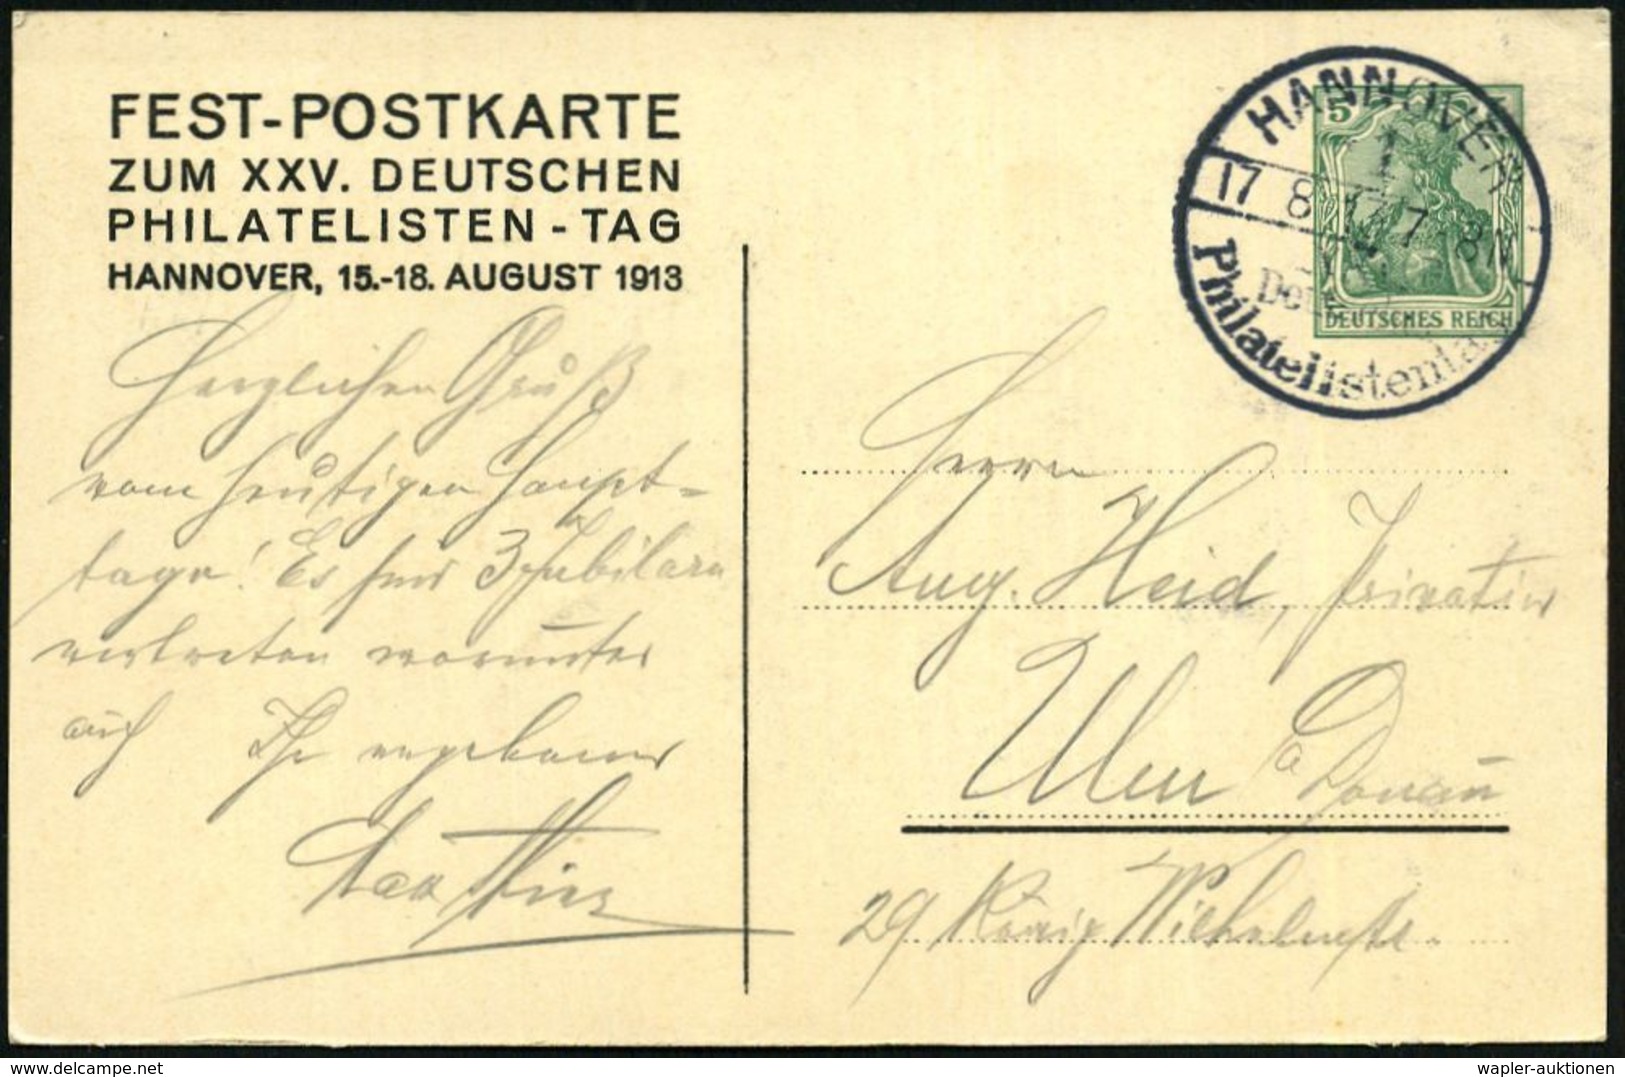 FEST-POSTKARTE
ZUM XXV. DEUTSCHEN
PHILATELISTEN-TAG
HANNOVER, 15.-18. AUGUST 1913
HANNOVER
1
17 8 13 7-8 N
Philatelistentag
5
DEUTSCHES REICH
Herzlichen Gruß
vom heutigen Haupt=
tage! Es sind 3 Jubilare
vertreten worunter
auch Ihr ergebener
Herrn
Aug. Heid, Privatier
Ulm a Donau
29 König Wilhelmstr.
www.delcampe.net
wapler-auktionen